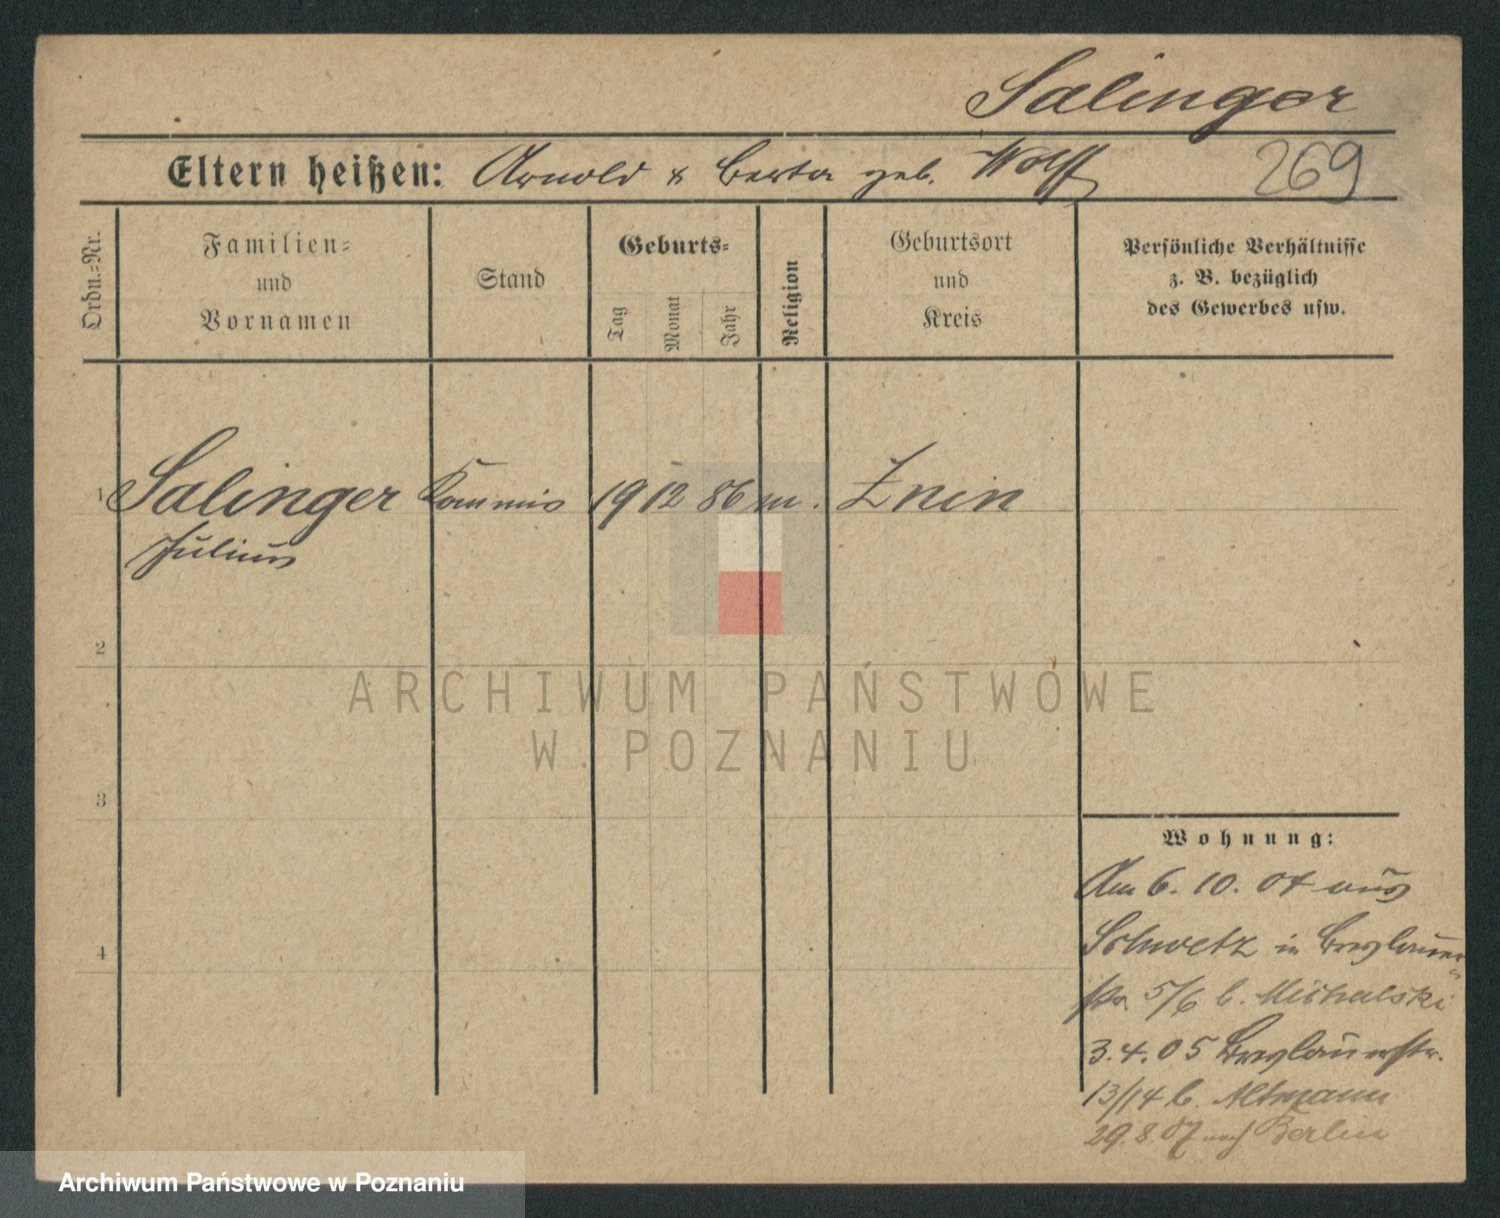 Salinger
Eltern heißen: Arnold & Berta geb. Wolff
269
Ordn.-Nr.
Familien-
und
Vornamen
Stand
Geburts-
Tag
Monat
Jahr
Religion
Geburtsort
und
Kreis
Persönliche Verhältnisse
z. B. bezüglich
des Gewerbes usw.
1 Salinger Kommis 19 12 86 m. Znin
Julius
2
3
4
ARCHIWUM PAŃSTWOWE
W POZNANIU
Wohnung:
Am 6. 10. 04 aus
Schwetz in Breslauer-
str. 5/6 b. Michalski
3. 4. 05 Breslauerstr.
13/14 b. Altmann
29. 8. 07 nach Berlin
Archiwum Państwowe w Poznaniu